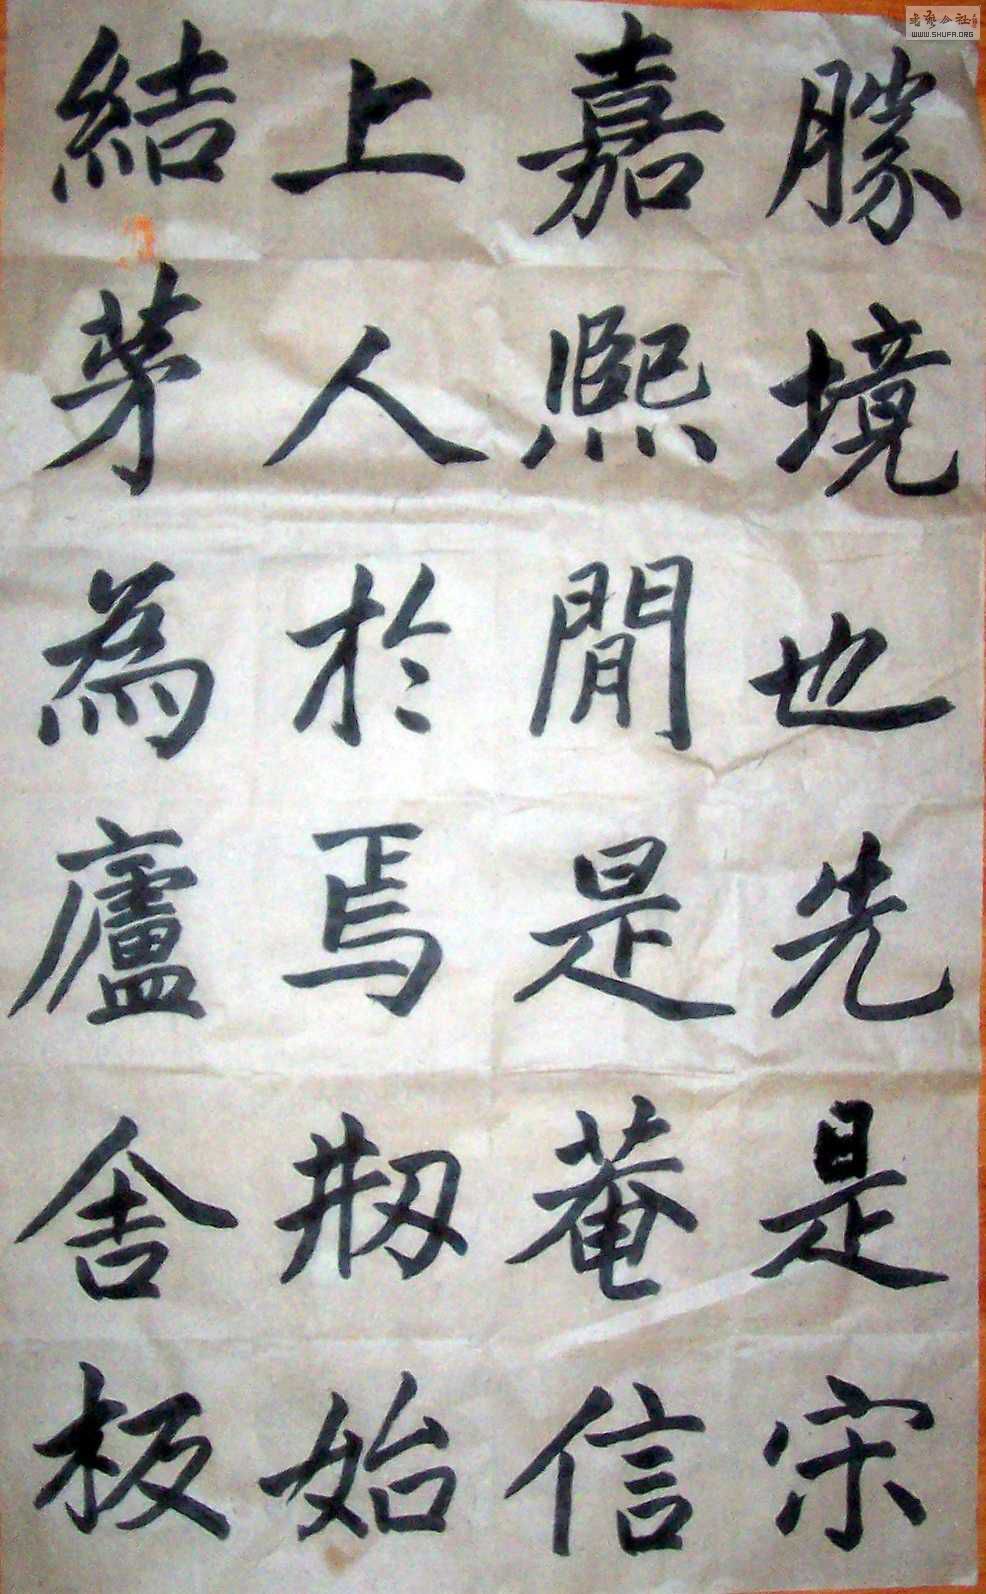 勝境也先是宋
嘉熙間是菴信
上人於焉剏始
結茅為廬舍板
WWW.SHUFA.ORG